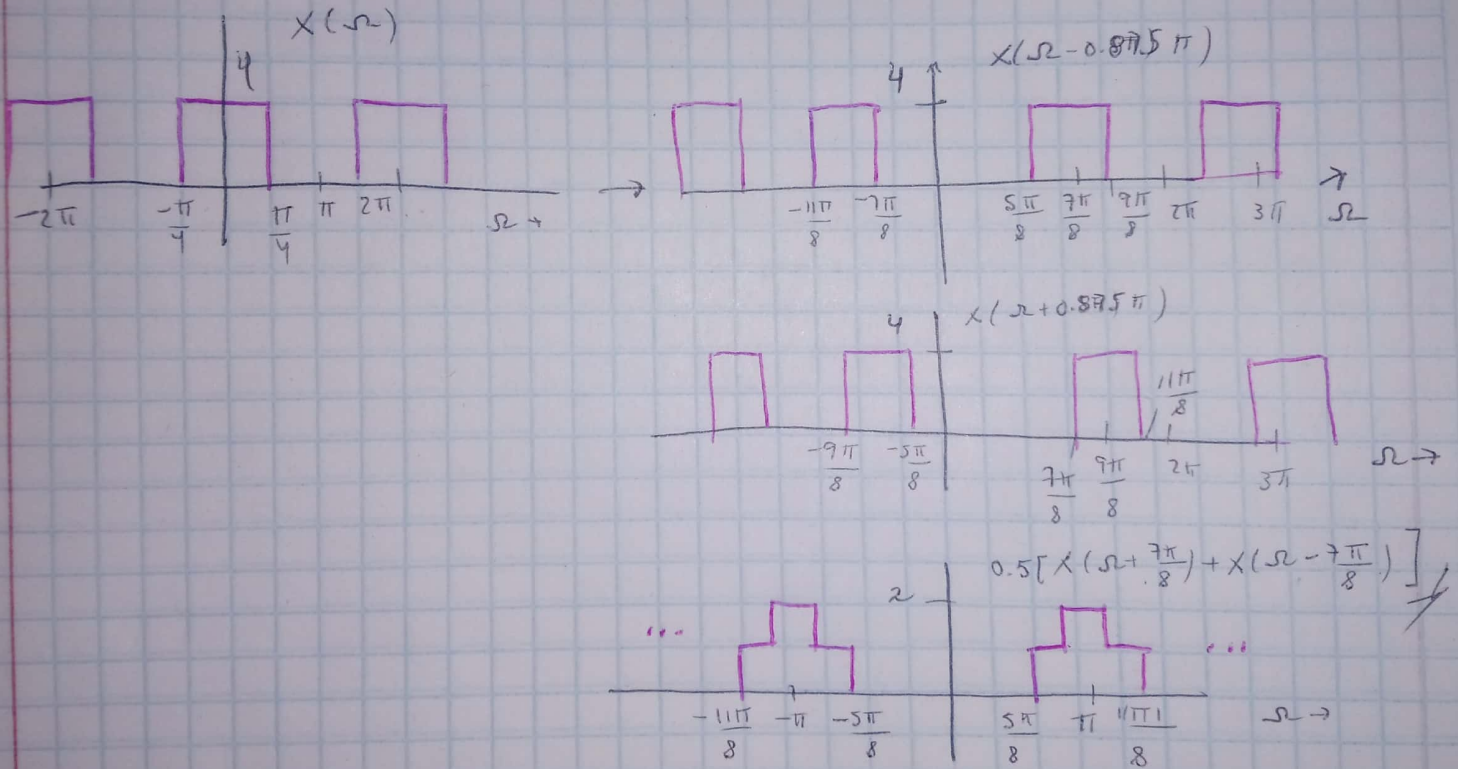 X(Ω)
4
-2π -π/4 π/4 π 2π Ω→
→
X(Ω-0.875π)
4
-11π/8 -7π/8 5π/8 7π/8 9π/8 2π 3π Ω
X(Ω+0.875π)
4
11π/8
-9π/8 -5π/8 7π/8 9π/8 2π 3π Ω→
0.5[X(Ω+7π/8)+X(Ω-7π/8)]
2
... ...
-11π/8 -π -5π/8 5π/8 π 11π/8 Ω→